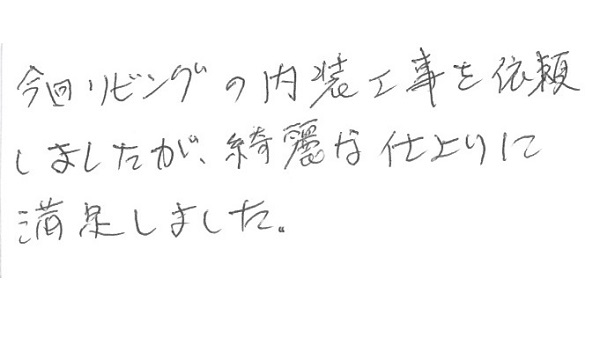 今回リビングの内装工事を依頼
しましたが、綺麗な仕上りに
満足しました。